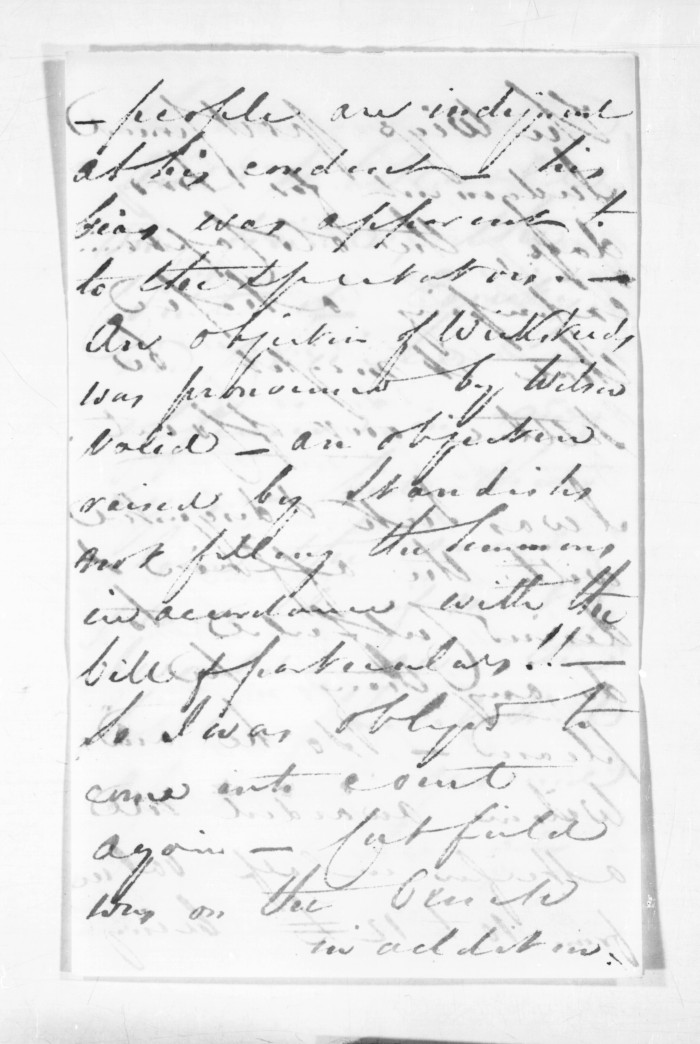 - people are indignant
at his conduct - his
bias was apparent
to the spectators -
An objection of Wicksteeds
was pronounced by Wilson
valid - an objection
raised by Standishs
not filling the Summons
in accordance with the
bill of particulars!! -
So I was obliged to
come into court
again - Cutfield
was on the Bench
in addition.